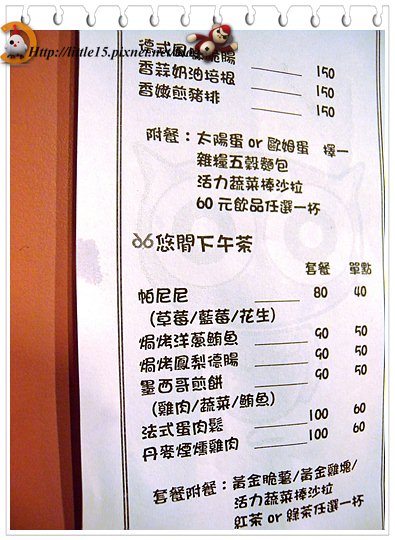 Http://little15.pixnet.net/blog
德式風味脆腸
香蒜奶油培根 150
香嫩煎豬排 150
150
附餐：太陽蛋 or 歐姆蛋 擇一
雜糧五穀麵包
活力蔬菜棒沙拉
60 元飲品任選一杯
悠閒下午茶
套餐 單點
帕尼尼 80 40
(草莓/藍莓/花生)
焗烤洋蔥鮪魚 90 50
焗烤鳳梨德腸 90 50
墨西哥煎餅 90 50
(雞肉/蔬菜/鮪魚)
法式蛋肉鬆 100 60
丹麥煙燻雞肉 100 60
套餐附餐：黃金脆薯/黃金雞塊/
活力蔬菜棒沙拉
紅茶 or 綠茶任選一杯